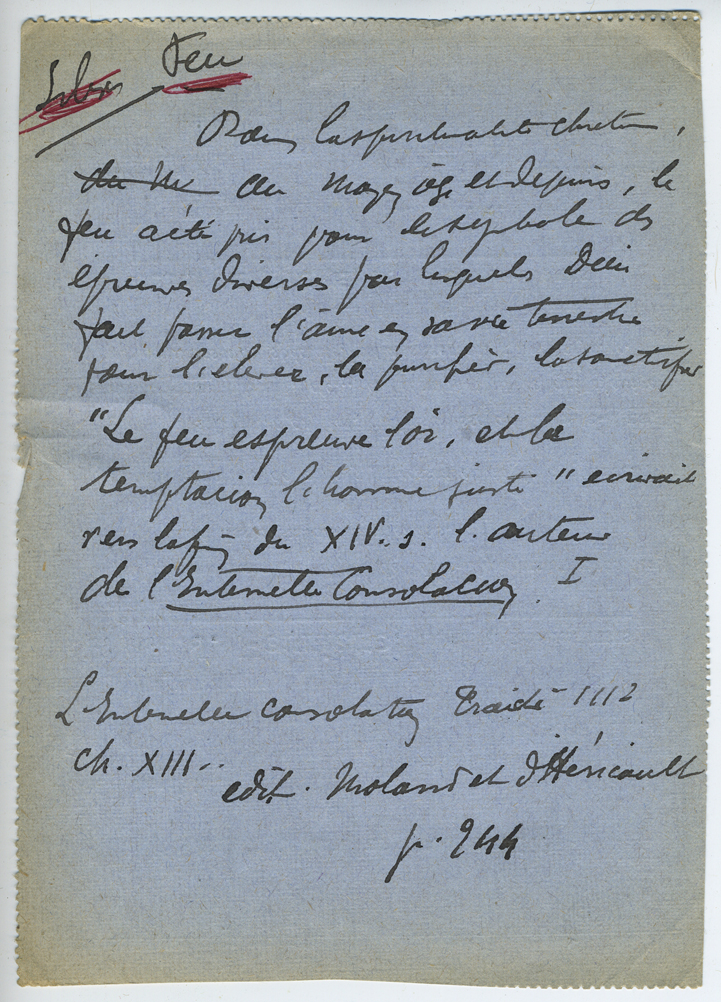 Feu
Dans la spiritualité chrétienne,
du M au moyen âge et depuis, le
feu a été pris pour le symbole des
épreuves diverses par lesquelles Dieu
fait passer l'âme en sa vie terrestre
pour l'élever, la purifier, la sanctifier
"Le feu espreuve l'or, et la
temptacion l'homme juste" écrivait
vers la fin du XIV. s. l'auteur
de l'Internelle Consolacion. I
L'Internelle consolation Traité III 2
ch. XIII..
edit. Moland et d'Héricault
p. 244